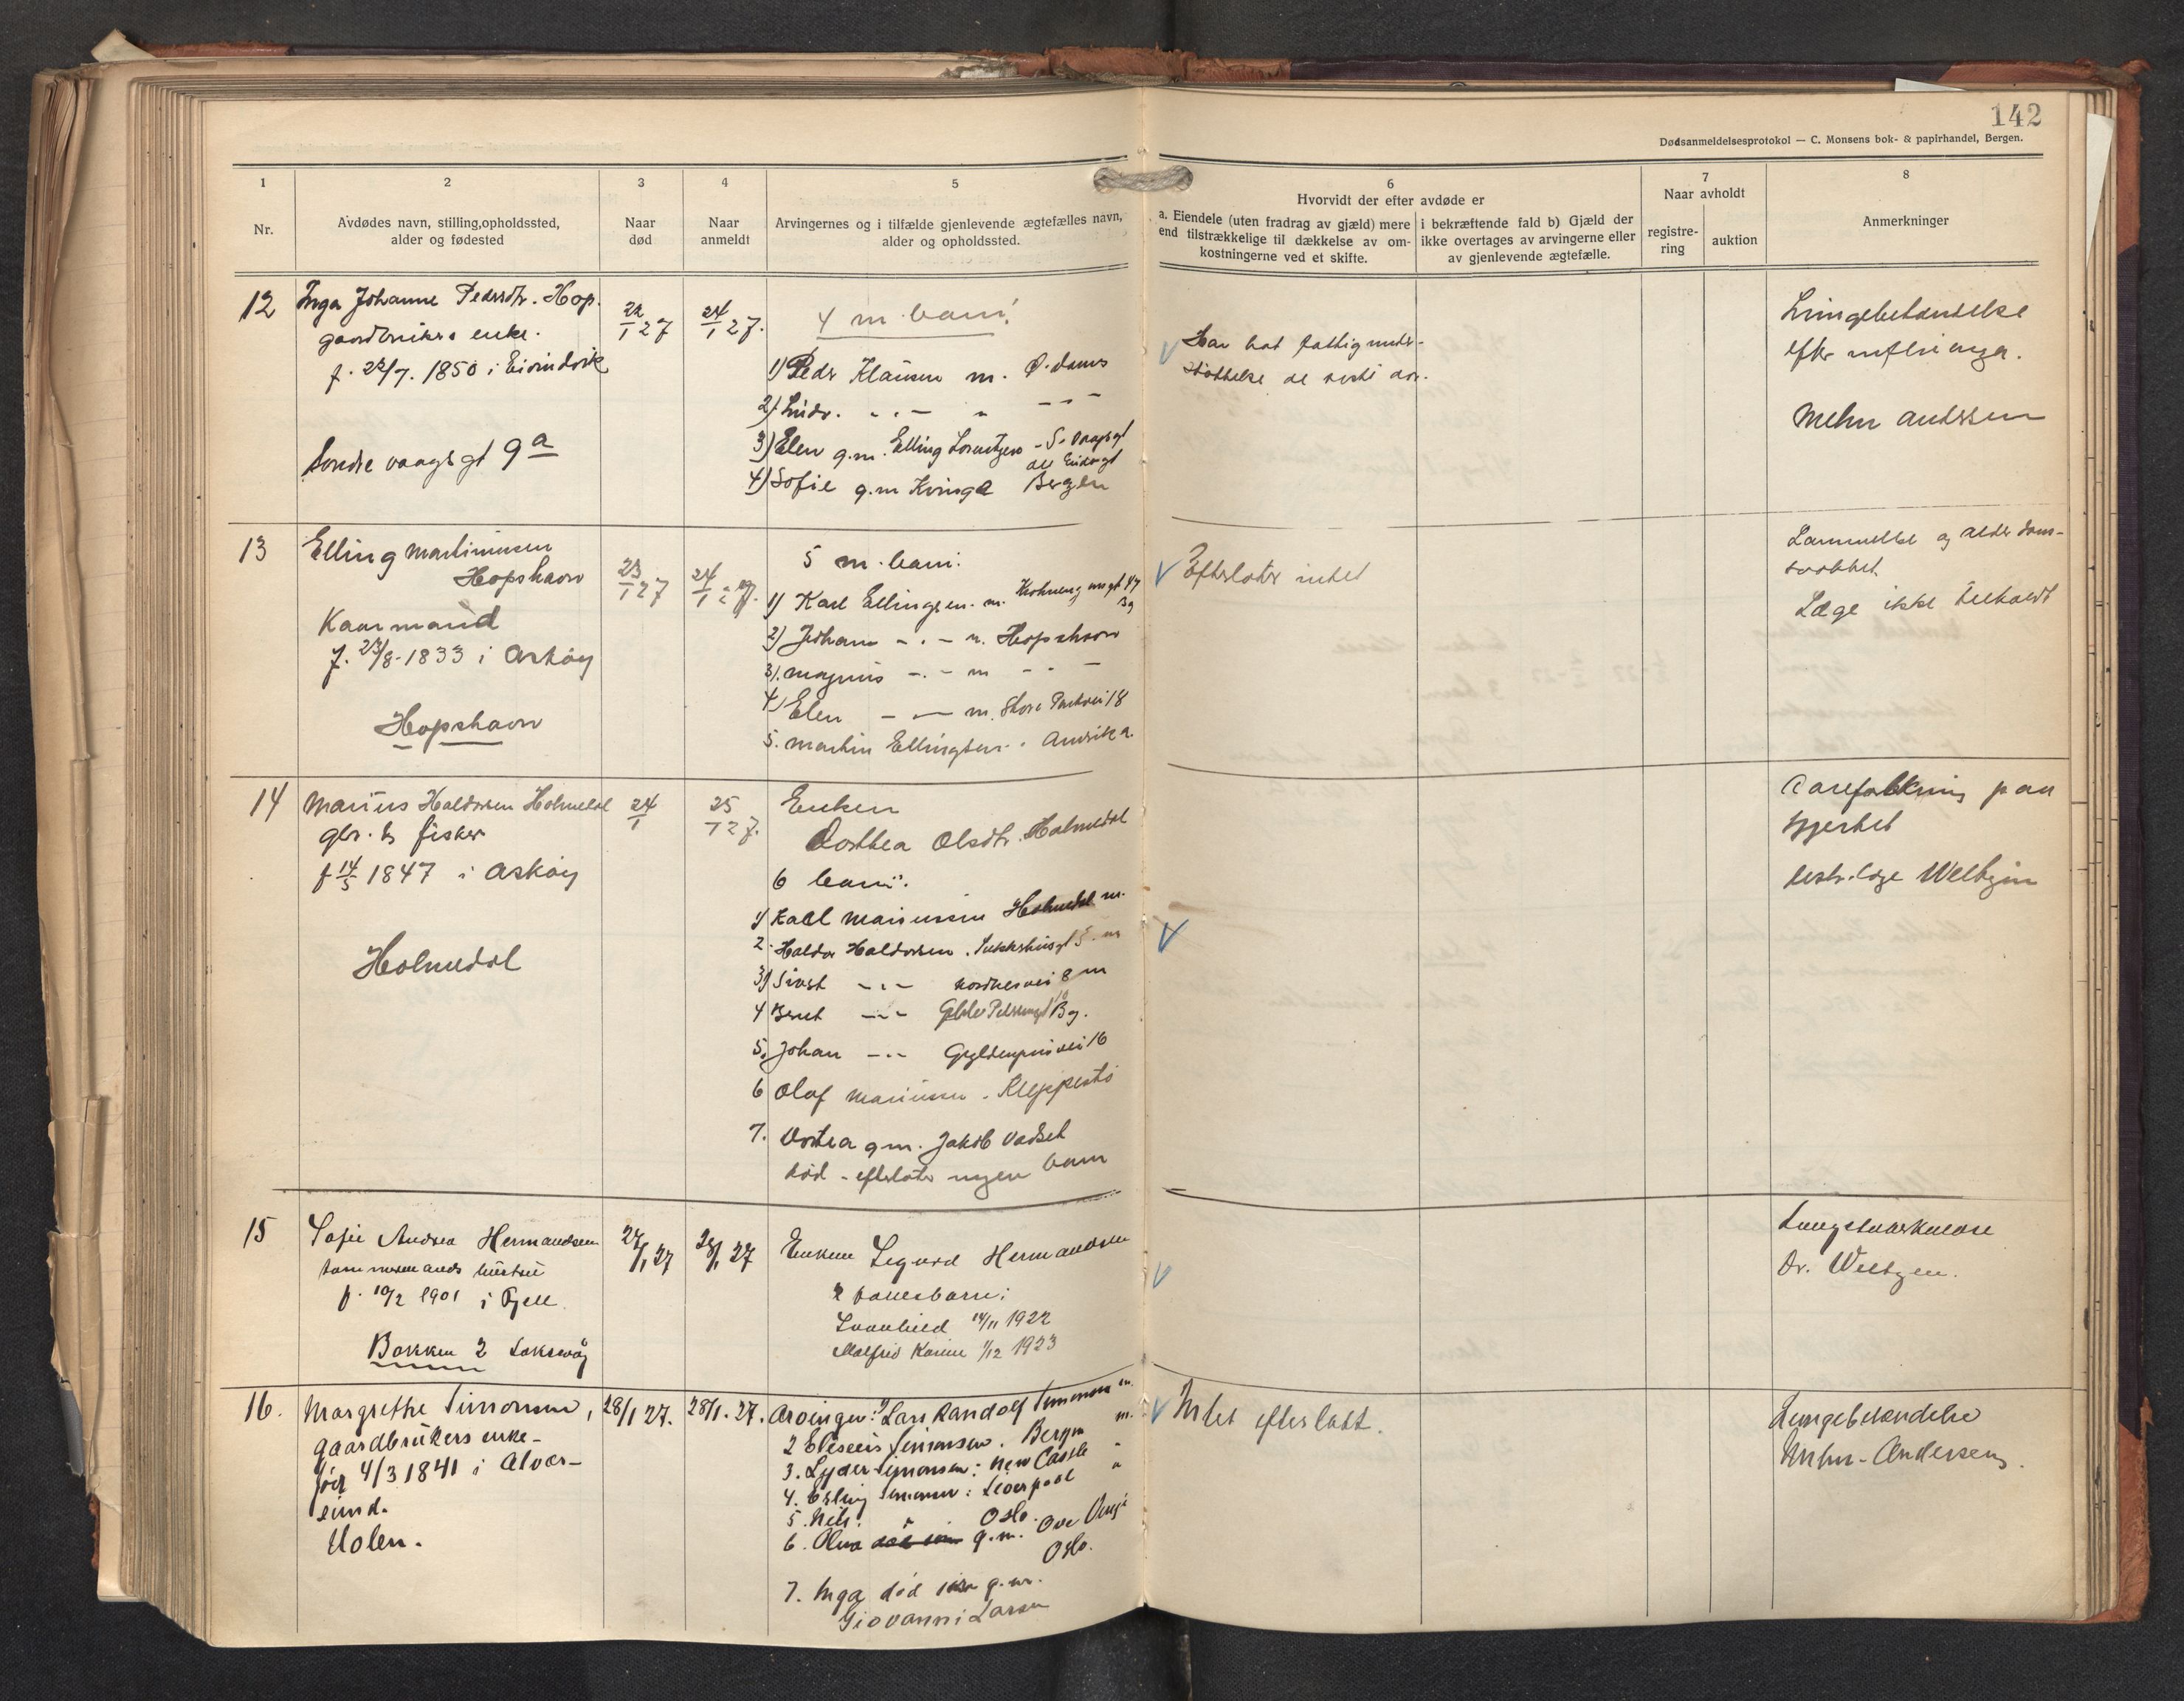 142
Dødsanmeldelsesprotokol — C. Monsens bok- & papirhandel, Bergen.
1
Nr.
2
Avdødes navn, stilling, opholdssted,
alder og fødested
3
Naar
død
4
Naar
anmeldt
5
Arvingernes og i tilfælde gjenlevende ægtefælles navn,
alder og opholdssted.
6
Hvorvidt der efter avdøde er
a. Eiendele (uten fradrag av gjæld) mere
end tilstrækkelige til dækkelse av om-
kostningerne ved et skifte.
i bekræftende fald b) Gjæld der
ikke overtages av arvingerne eller
av gjenlevende ægtefælle.
7
Naar avholdt
registre-
ring
auktion
8
Anmerkninger
12
Inga Johanne Pedersdtr. Hop.
gaardbrukers enke.
f. 22/7. 1850 i Eivindvik
Søndre vaagsgt 9a
22/1 27
24/1 27.
4 m. barn:
1) Peder Klausen m.
2) Ludv. - . - "
3) Elen g.m. Elling Lorentzen
4) Sofie g.m Kvinge Bergen
Har hat fattigunder-
støttelse de siste aar.
Lungebetændelse
efter influenza.
Mehn Andersen
13
Elling Martinussen
Hopshavn
Kaarmand
f. 23/8-1833 i Askøy
Hopshavn
23/1 27
24/1 27.
5 m. barn:
1) Karl Ellingsen. m.
2) Johan - . - m. Hopshavn
3). Magnus - . - m - - -
4) Elen - - m. Store Parkvei 18
5. Martin Ellingsen. Amerika.
Efterlater intet
Lammelse og alderdoms-
svakhet
Læge ikke tilkaldt
14
Marius Haldorsen Holmedal
gbr. & fisker
f 14/5 1847 i Askøy
Holmedal
24/1
25/1 27.
Enken
Dorthea Olsdtr. Holmedal
6 barn:
1) Karl Mariussen Holmedal m.
2. Haldor Haldorsen. Sukkerhusgt 5. m
3) Sivert - . - Nordnesvei 8 m
4 Bernt - . - Bg.
5. Johan - . - Gyldenprisvei 16
6 Olaf Mariussen. Kleppestø
7. Dortea g.m. Jakob Vadset
død - efterlater ingen barn
Aareforkalkning paa
hjertet
distr.læge Welhgen
15
Sofie Andrea Hermandsen
tømmermands hustru
f. 10/2 1901 i Fjell.
Bakken 2 Laksevåg
27/1 27
28/1 27
Enkem Sigurd Hermandsen
2 fællesbarn:
Svanhild 14/11 1922
Malfrid Karine 1/12 1923
Lungetuberkulose
Dr. Welhgen.
16.
Margrethe Simonsen,
gaardbrukers enke -
født 4/3 1841 i Alver-
sund.
Holen.
28/1 27.
28/1. 27.
Arvinger: 1) Lars Randolf Simonsen m.
2 Eliseus Simonsen. Bergen m.
3. Lyder Simonsen: New Castle "
4. Erling Simonsen: Liverpool "
5. Nils. " Oslo.
6. Olva g.m. Ove
Oslo.
7. Inga død g.m.
Giovanni Larsen
Intet efterlatt.
Lungebetændelse
Mehn-Andersen.